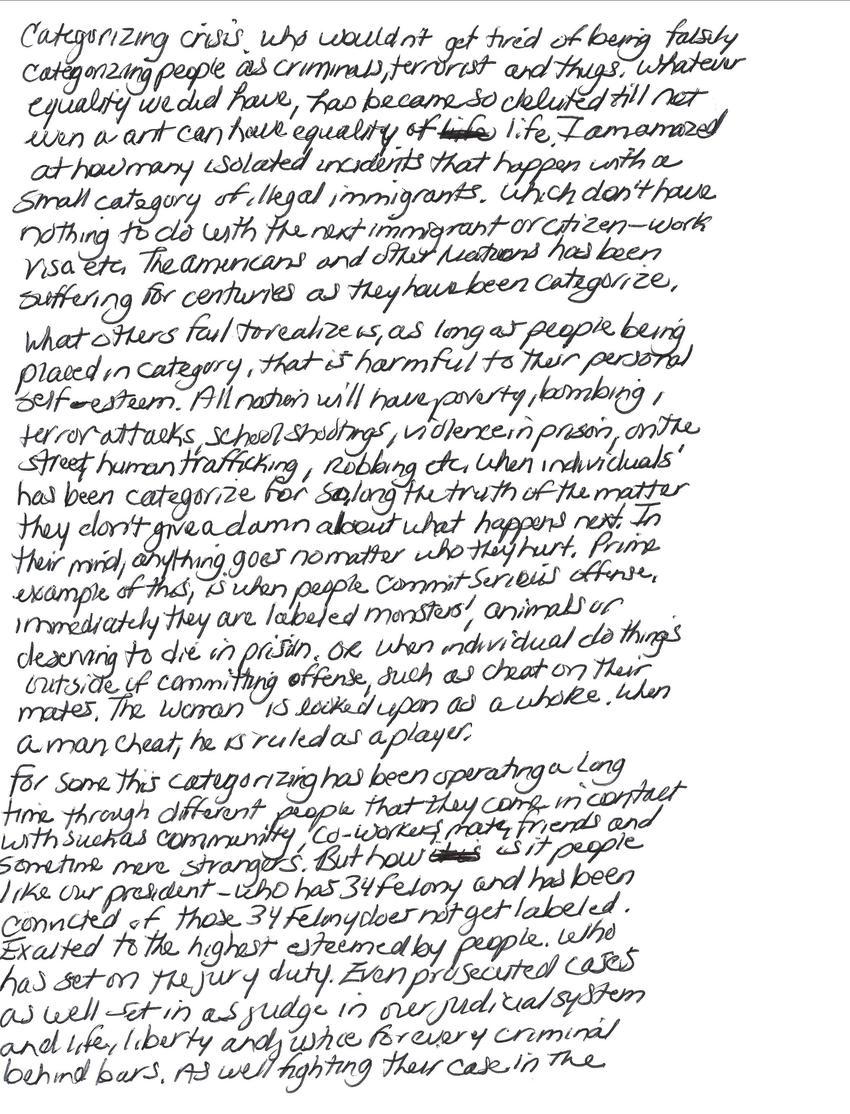 Categorizing crisis, who wouldn't get tired of being falsely
categorizing people as criminals, terrorist and thugs. Whatever
equality we did have, has became so deluted till not
even a art can have equality of life. I am amazed
at how many isolated incidents that happen with a
small category of illegal immigrants. Which don't have
nothing to do with the next immigrant or citizen-work
visa etc. The Americans and other Nations has been
suffering for centuries as they have been categorize.
What others fail to realize is, as long as people being
placed in category, that is harmful to their personal
self-esteem. All nation will have poverty, bombing,
terror attacks, school shootings, violence in prison, on the
street, human trafficking, robbing etc. When individuals'
has been categorize for so, long the truth of the matter
they don't give a damn about what happens next. In
their mind, anything goes no matter who they hurt. Prime
example of this, is when people commit serious offense,
immediately they are labeled monsters', animals or
deserving to die in prison. Or when individual do things
outside of committing offense, such as cheat on their
mates. The woman is looked upon as a whore. When
a man cheat, he is ruled as a player.
For some this categorizing has been operating a long
time through different people that they come in contact
with such as community, co-workers, mate, friends and
sometime mere strangers. But how is it people
like our president - who has 34 felony and has been
convicted of those 34 felony does not get labeled.
Exalted to the highest esteemed by people. Who
has set on the jury duty. Even prosecuted cases
as well set in as judge in our judicial system
and life, liberty and justice for every criminal
behind bars. As well fighting their case in the